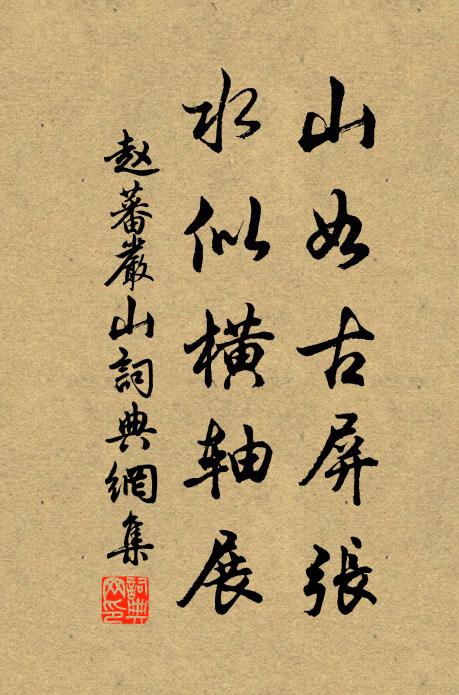 山如古屏張
水似橫轴展
赵蕃嚴山詞典網集
詞典网印